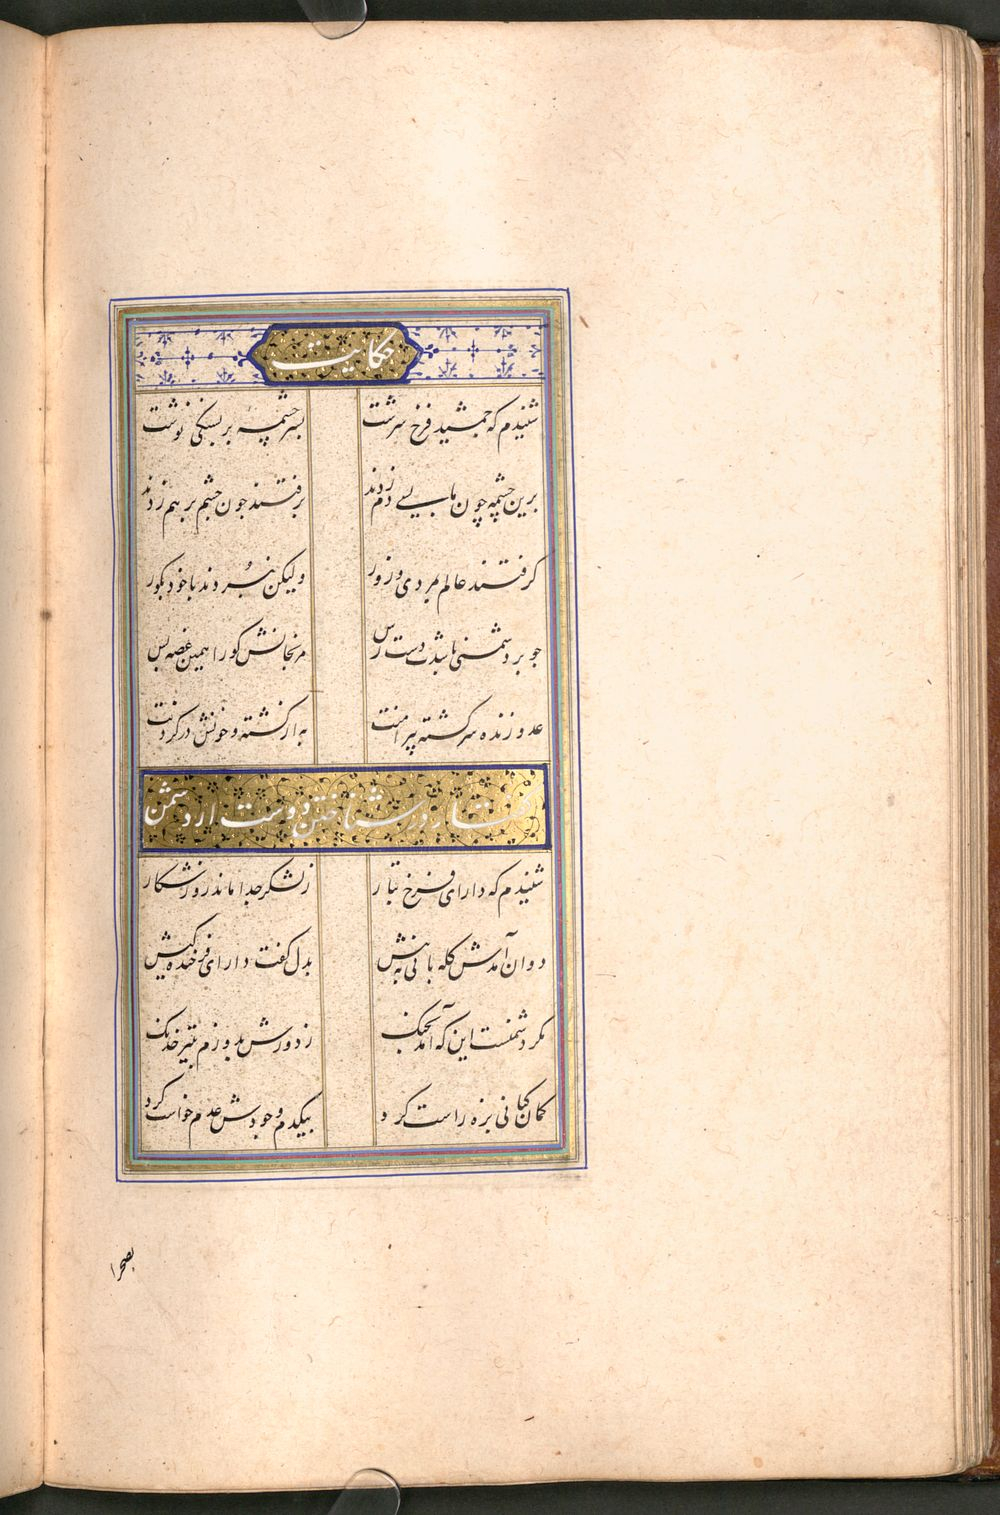 حکایت
شنیدم که جمشید فرخ سرشت بسرچشمهٔ بر بسنکی نوشت
برین چشمه چون ما بسی دم زدند برفتند چون چشم بر هم زدند
کرفتند عالم بمردی و زور ولیکن نبردند با خود بکور
چو بر دشمنی باشدت دست رس مرنجانش کو را همین غصه بس
عدو زنده سرکشته پیرامنت به از کشته و خونش در کردنت
کفتار در شناختن دوست از دشمن
شنیدم که دارای فرخ تبار ز لشکر جدا ماند روز شکار
دوان آمدش کله بانی به پیش بدل کفت دارای فرخنده کیش
مکر دشمنست این که آمد بجنک ز دورش بدوزم بتیر خدنک
کمان کیانی بزه راست کرد بیکدم وجودش عدم خواست کرد
بصحرا